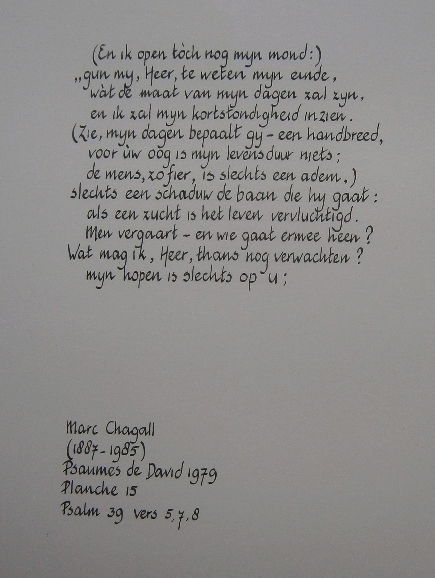 (En ik open tòch nog mijn mond:)
„gun mij, Heer, te weten mijn einde,
wàt de maat van mijn dagen zal zijn.
en ik zal mijn kortstondigheid inzien.
(Zie, mijn dagen bepaalt gij - een handbreed,
voor ùw oog is mijn levensduur niets;
de mens, zó fier, is slechts een adem.)
slechts een schaduw de baan die hij gaat:
als een zucht is het leven vervluchtigd.
Men vergaart - en wie gaat ermee heen?
Wat mag ik, Heer, thans nog verwachten?
mijn hopen is slechts op u;
Marc Chagall
(1887-1985)
Psaumes de David 1979
Planche 15
Psalm 39 vers 5,7,8